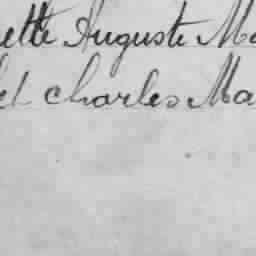 ette Auguste Ma
et Charles Ma